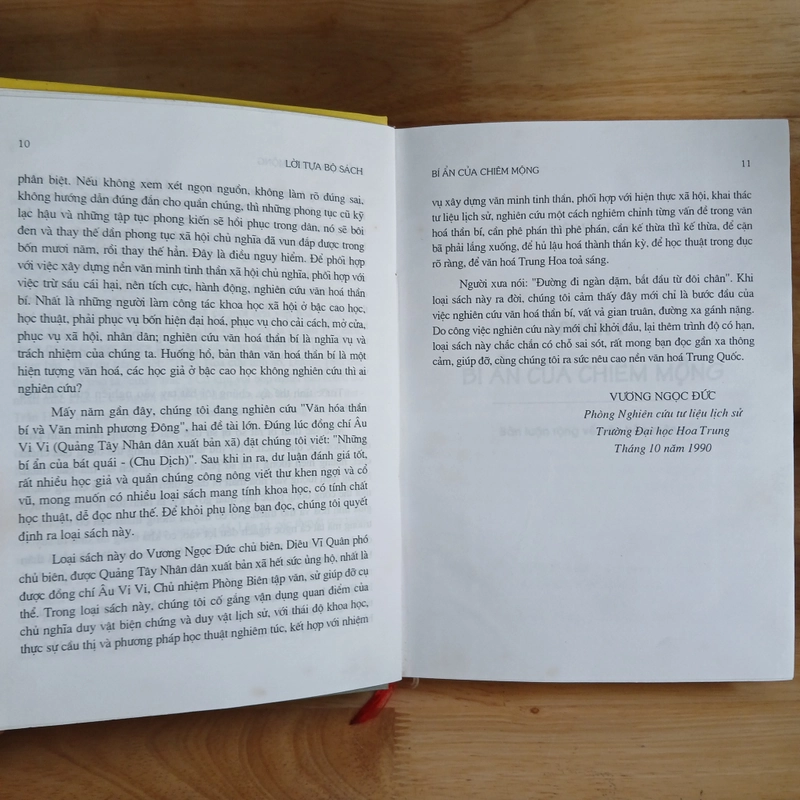 10
LỜI TỰA BỘ SÁCH
phân biệt. Nếu không xem xét ngọn nguồn, không làm rõ đúng sai,
không hướng dẫn đúng đắn cho quần chúng, thì những phong tục cũ kỹ
lạc hậu và những tập tục phong kiến sẽ hồi phục trong dân, nó sẽ bôi
đen và thay thế dần phong tục xã hội chủ nghĩa đã vun đắp được trong
bốn mươi năm, rồi thay thế hẳn. Đây là điều nguy hiểm. Để phối hợp
với việc xây dựng nền văn minh tinh thần xã hội chủ nghĩa, phối hợp với
việc trừ sâu cái hại, nên tích cực, hành động, nghiên cứu văn hoá thần
bí. Nhất là những người làm công tác khoa học xã hội ở bậc cao học,
học thuật, phải phục vụ bốn hiện đại hoá, phục vụ cho cải cách, mở cửa,
phục vụ xã hội, nhân dân; nghiên cứu văn hoá thần bí là nghĩa vụ và
trách nhiệm của chúng ta. Huống hồ, bản thân văn hoá thần bí là một
hiện tượng văn hoá, các học giả ở bậc cao học không nghiên cứu thì ai
nghiên cứu?
Mấy năm gần đây, chúng tôi đang nghiên cứu "Văn hóa thần
bí và Văn minh phương Đông", hai đề tài lớn. Đúng lúc đồng chí Âu
Vi Vi (Quảng Tây Nhân dân xuất bản xã) đặt chúng tôi viết: "Những
bí ẩn của bát quái - (Chu Dịch)". Sau khi in ra, dư luận đánh giá tốt,
rất nhiều học giả và quần chúng công nông viết thư khen ngợi và cổ
vũ, mong muốn có nhiều loại sách mang tính khoa học, có tính chất
học thuật, dễ đọc như thế. Để khỏi phụ lòng bạn đọc, chúng tôi quyết
định ra loại sách này.
Loại sách này do Vương Ngọc Đức chủ biên, Diêu Vĩ Quân phó
chủ biên, được Quảng Tây Nhân dân xuất bản xã hết sức ủng hộ, nhất là
được đồng chí Âu Vi Vi, Chủ nhiệm Phòng Biên tập văn, sử giúp đỡ cụ
thể. Trong loại sách này, chúng tôi cố gắng vận dụng quan điểm của
chủ nghĩa duy vật biện chứng và duy vật lịch sử, với thái độ khoa học,
thực sự cầu thị và phương pháp học thuật nghiêm túc, kết hợp với nhiệm
BÍ ẨN CỦA CHIÊM MỘNG
11
vụ xây dựng văn minh tinh thần, phối hợp với hiện thực xã hội, khai thác
tư liệu lịch sử, nghiên cứu một cách nghiêm chỉnh từng vấn đề trong văn
hoá thần bí, cần phê phán thì phê phán, cần kế thừa thì kế thừa, để cặn
bã phải lắng xuống, để hủ lậu hoá thành thần kỳ, để học thuật trong đục
rõ ràng, để văn hoá Trung Hoa toả sáng.
Người xưa nói: "Đường đi ngàn dặm, bắt đầu từ đôi chân". Khi
loại sách này ra đời, chúng tôi cảm thấy đây mới chỉ là bước đầu của
việc nghiên cứu văn hoá thần bí, vất vả gian truân, đường xa gánh nặng.
Do công việc nghiên cứu này mới chỉ khởi đầu, lại thêm trình độ có hạn,
loại sách này chắc chắn có chỗ sai sót, rất mong bạn đọc gần xa thông
cảm, giúp đỡ, cùng chúng tôi ra sức nêu cao nền văn hoá Trung Quốc.
VƯƠNG NGỌC ĐỨC
Phòng Nghiên cứu tư liệu lịch sử
Trường Đại học Hoa Trung
Tháng 10 năm 1990